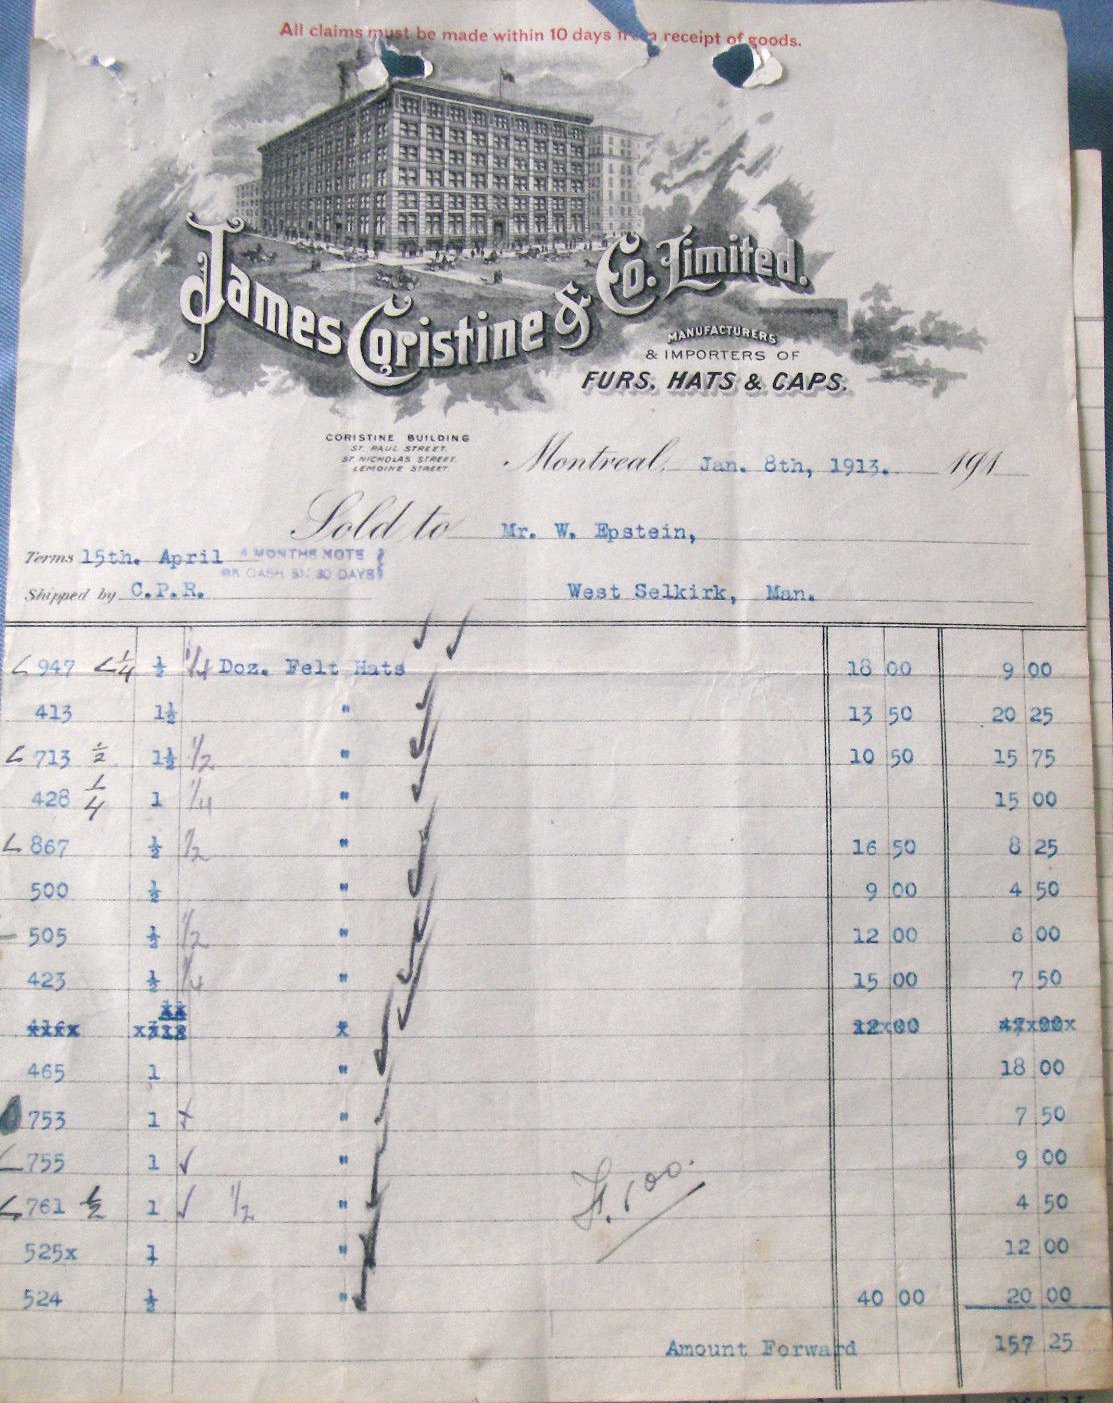 All claims must be made within 10 days from receipt of goods.
James Coristine & Co. Limited.
MANUFACTURERS
& IMPORTERS OF
FURS, HATS & CAPS.
CORISTINE BUILDING
ST. PAUL STREET,
ST. NICHOLAS STREET,
LEMOINE STREET.
Montreal, Jan. 8th, 1913. 191
Sold to Mr. W. Epstein,
Terms 15th. April 4 MONTHS NOTE
OR CASH 30 DAYS
Shipped by C.P.R. West Selkirk, Man.
947 1/4 ½ 1/4 Doz. Felt Hats 18 00 9 00
413 1½ " 13 50 20 25
713 ½ 1½ 1/2 " 10 50 15 75
428 1/4 1 1/4 " 15 00
867 ½ 1/2 " 16 50 8 25
500 ½ " 9 00 4 50
505 ½ 1/2 " 12 00 6 00
423 ½ 1/4 " 15 00 7 50
465 1 " 18 00
753 1 " 7 50
755 1 ✓ " 9 00
761 ½ 1 ✓ 1/2 " 4 50
525x 1 " 12 00
524 ½ " 40 00 20 00
Amount Forward 157 25